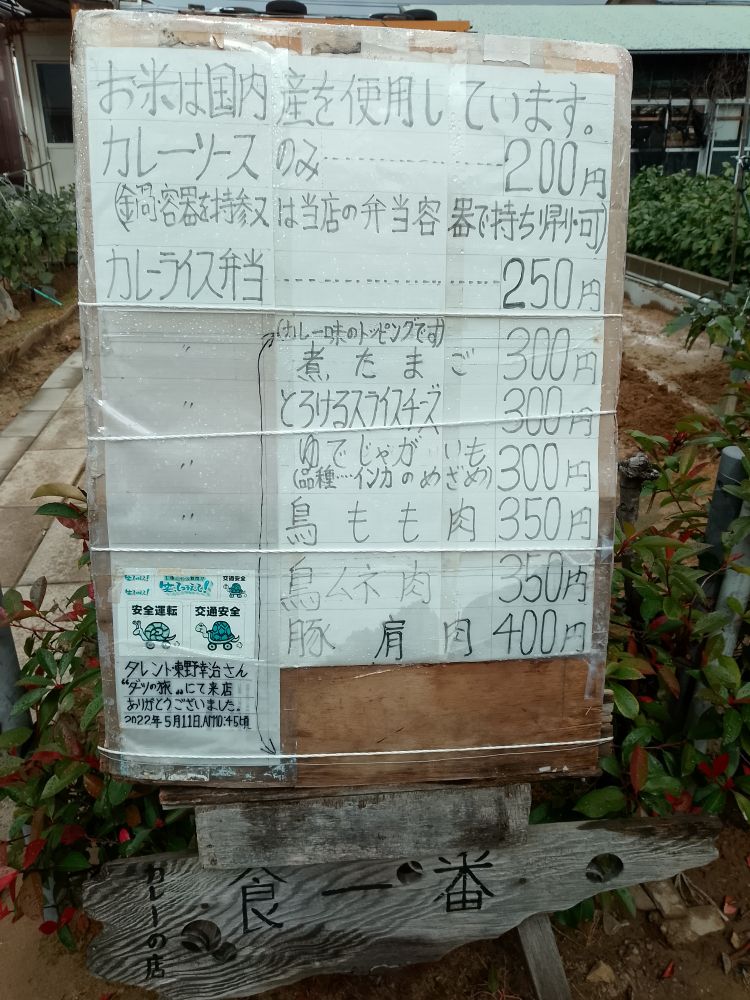 お米は国内産を使用しています。
カレーソースのみ----------200円
(鍋・容器を持参又は当店の弁当容器で持ち帰り可)
カレーライス弁当----------250円
(カレー味のトッピングです)
〃 煮たまご 300円
〃 とろけるスライスチーズ 300円
〃 ゆでじゃがいも 300円
(品種・・・・インカのめざめ)
〃 鳥もも肉 350円
鳥ムネ肉 350円
豚肩肉 400円
交通安全
安全運転 交通安全
タレント東野幸治さん
“ダーツの旅〟にて来店
ありがとうございました。
2022年5月11日.AM10:45頃
カレーの店
食一番